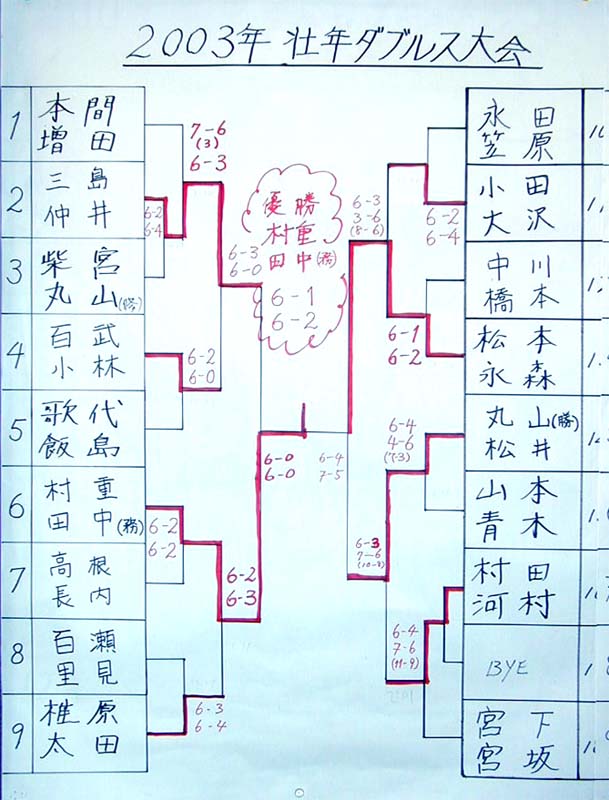 2003年 壮年ダブルス大会
1
本間
増田
2
三島
仲井
3
柴宮
丸山(勝)
4
百武
小林
5
歌代
飯島
6
村重
田中(務)
7
高根
長内
8
百瀬
里見
9
椎原
太田
7-6
(3)
6-3
6-2
6-4
6-3
6-0
6-2
6-0
6-2
6-2
6-2
6-3
6-3
6-4
6-0
6-0
優勝
村重
田中(務)
6-1
6-2
6-4
7-5
6-3
3-6
(8-6)
6-2
6-4
6-1
6-2
6-4
4-6
(7-3)
6-3
7-6
(10-8)
6-4
7-6
(11-9)
永田
笠原
小田
大沢
中川
橋本
松本
永森
丸山(勝)
松井
山本
青木
村田
河村
BYE
宮下
宮坂